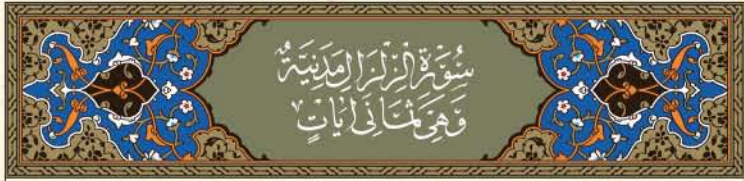 سُورَةُ الزِّلْزَالِ مَدَنِيَّةٌ
وَهِيَ ثَمَانِى اٰيَاتٍ